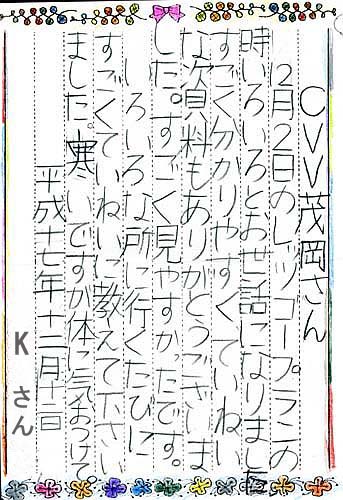 CVV茂岡さん
12月2日のレッツゴープランの
時いろいろとお世話になりました
すごく分かりやすくていねい
な資料もありがとうございま
した。すごく見やすかったです。
いろいろな所に行くたびに
すごくていねいに教えて下さい
ました。寒いですが体に気をつけて
平成十七年十二月十二日
K さん